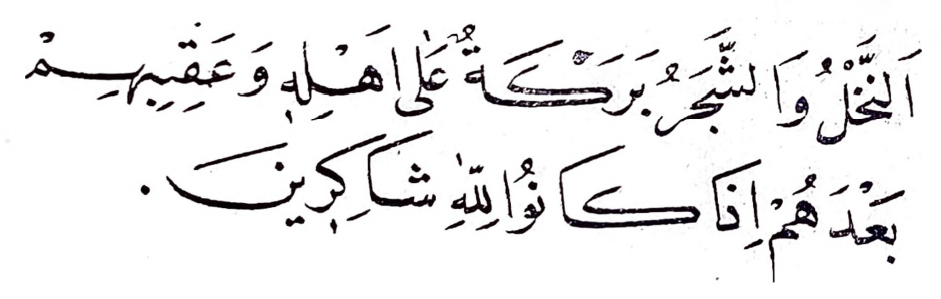 اَلنَّخْلُ وَالشَّجَرُ بَرَكَةٌ عَلٰى اَهْلِهِ وَعَقِبِهِمْ
بَعْدَهُمْ اِذَا كَانُوا لِلّٰهِ شَاكِرِينَ.